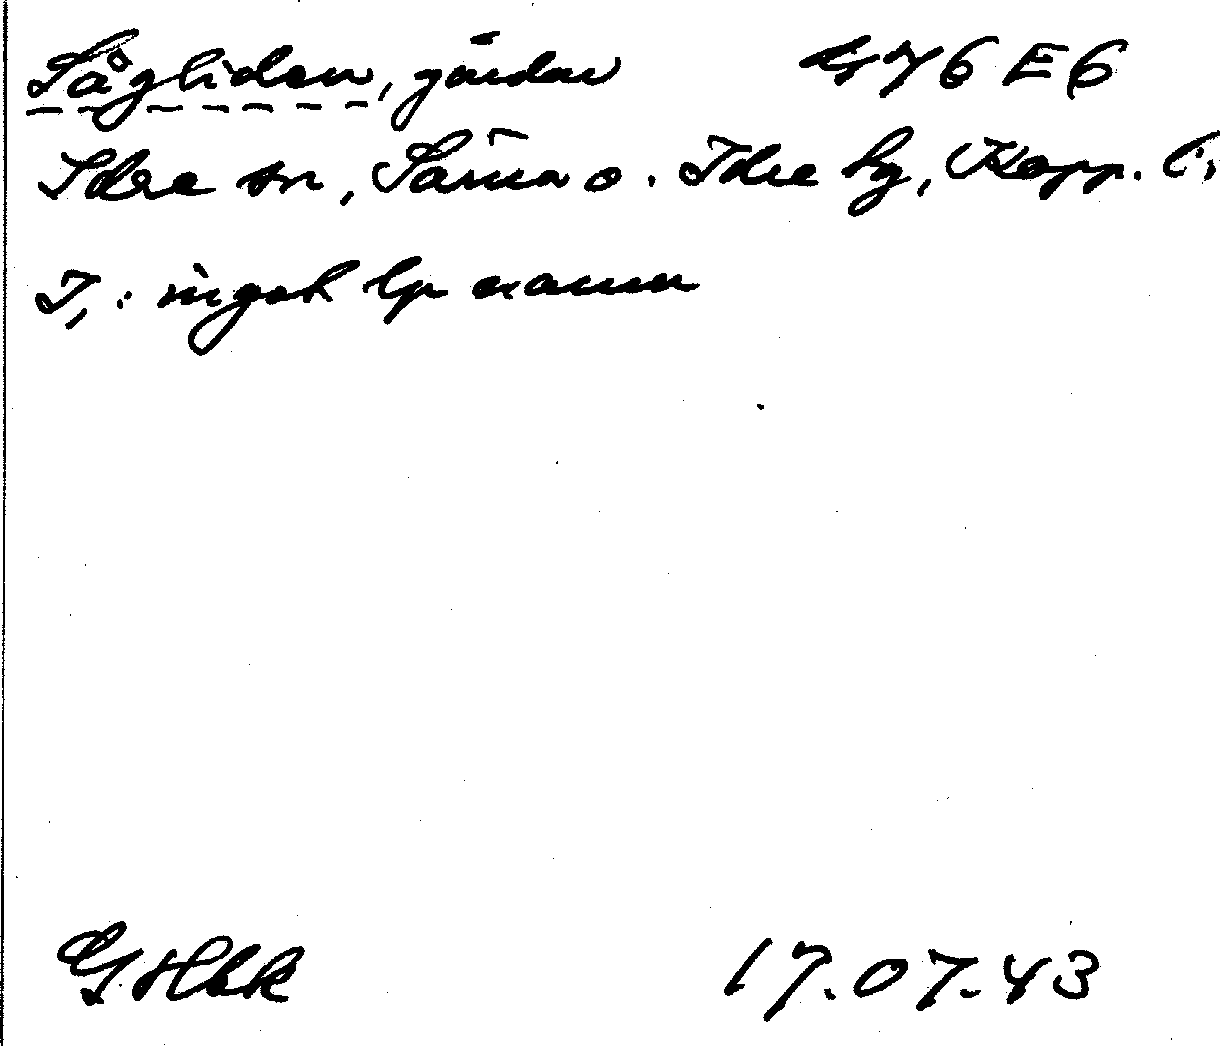 Sågliden, gårdar G 76 E6
Idre sn, Särna o. Idre tg, Kopp. l.
I,: inget lp namn
GHbk 17.07.43